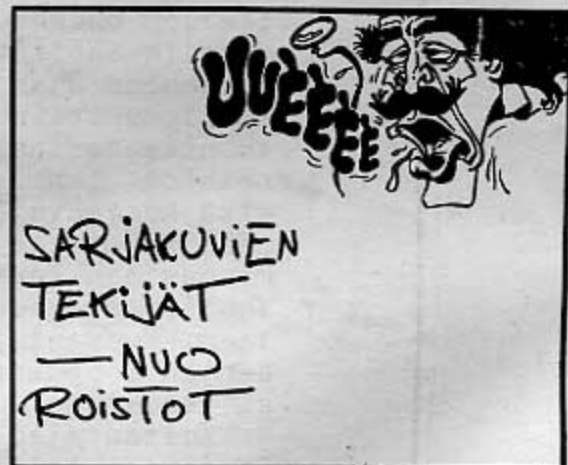 UUÈÈÈÈ
SARJAKUViEN
TEKiJÄT
— NUO
ROiSTOT